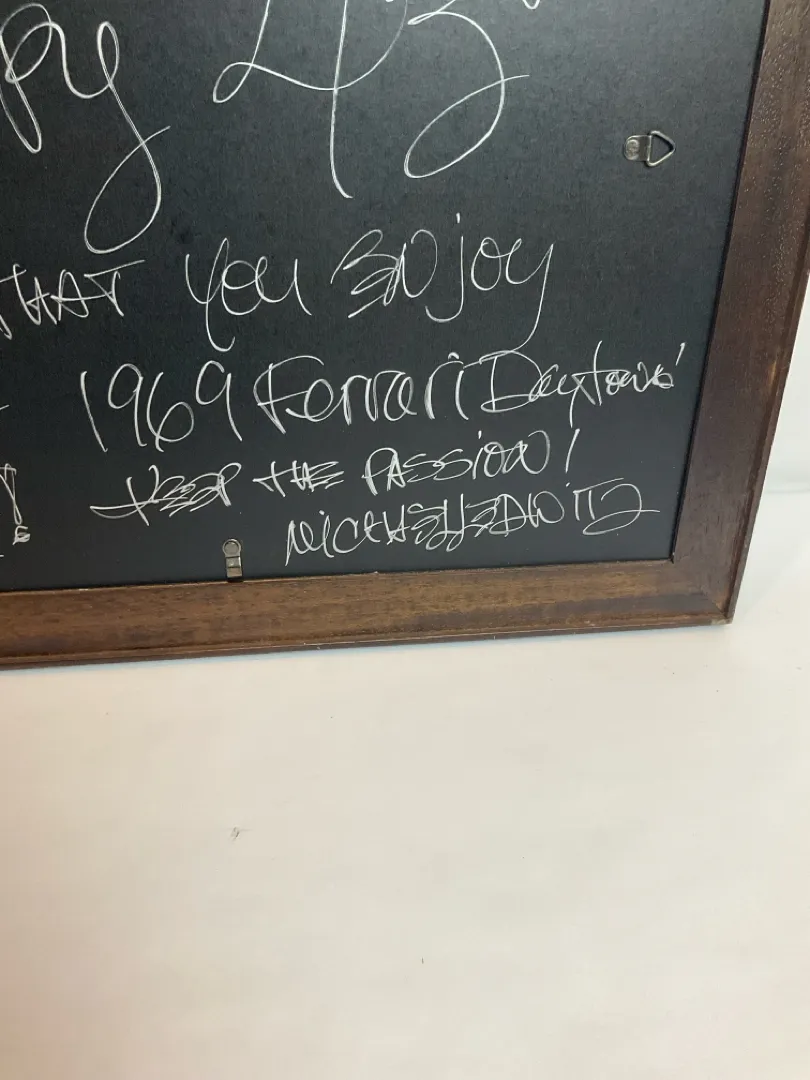 py 43
THAT you ENjoy
1969 Ferrari Daytona!
KEEP THE PASSION!